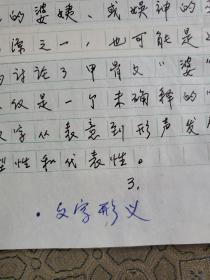 的婆姨、或娱神的
源之一,也可能是
讨论了甲骨文“婆”
仅是一个未确释的“
文字从表意到形声发展
型性和代表性。
3.
·文字形义